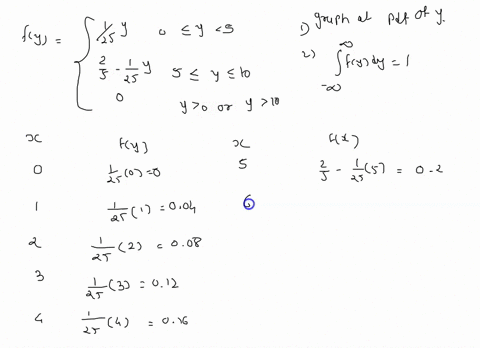 f(y) = { 1/25 y 0 ≤ y < 5
2/5 - 1/25 y 5 ≤ y ≤ 10
0 y>0 or y > 10
1) graph at Pdf of y.
2) ∫_{-∞}^{∞} f(y) dy = 1
x f(y) x f(x)
0 1/25 (0) = 0 5 2/5 - 1/25 (5) = 0.2
1 1/25 (1) = 0.04 6
2 1/25 (2) = 0.08
3 1/25 (3) = 0.12
4 1/25 (4) = 0.16